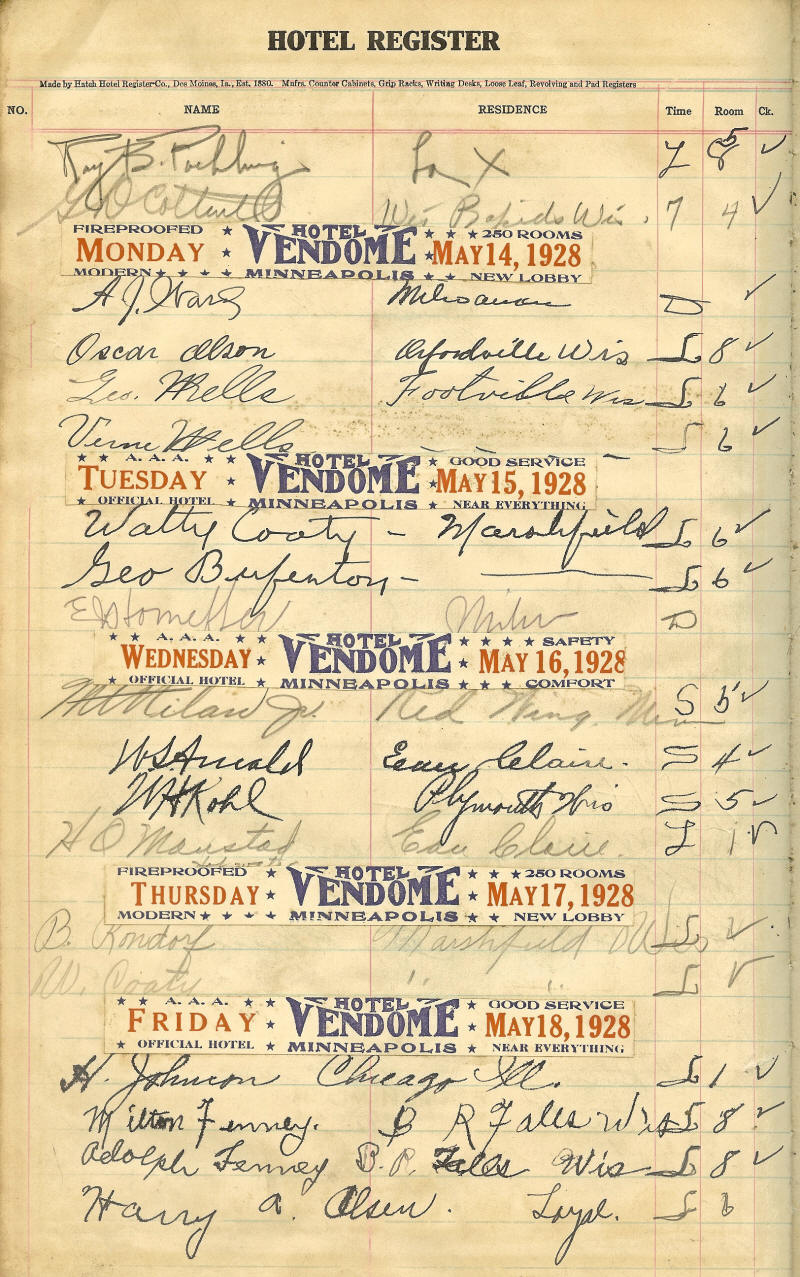 HOTEL REGISTER
Made by Hatch Hotel Register Co., Des Moines, Ia., Est. 1880. Mnfrs. Counter Cabinets, Grip Racks, Writing Desks, Loose Leaf, Revolving and Pad Registers
NO. NAME RESIDENCE Time Room Ck.
Roy B. La X L 8 5 ✓
Wis Rapids Wis. 7 4 ✓
FIREPROOFED ★ HOTEL ★ ★ ★ 250 ROOMS
MONDAY ★ VENDOME ★ MAY 14, 1928
MODERN ★ ★ ★ ★ MINNEAPOLIS ★ ★ ★ NEW LOBBY
A J. Ward D ✓
Oscar Olson Orfordville Wis L 8 ✓
Geo. Wells Footville Wis L 6 ✓
Verne Wells L 6 ✓
★ ★ A. A. A. ★ ★ HOTEL ★ GOOD SERVICE
TUESDAY ★ VENDOME ★ MAY 15, 1928
★ OFFICIAL HOTEL ★ MINNEAPOLIS ★ NEAR EVERYTHING
Coaty – Marshfield L 6 ✓
Geo – — L 6 ✓
Milw D
★ ★ A. A. A. ★ ★ HOTEL ★ ★ ★ ★ SAFETY
WEDNESDAY ★ VENDOME ★ MAY 16, 1928
★ OFFICIAL HOTEL ★ MINNEAPOLIS ★ ★ ★ ★ COMFORT
Jr. Red Wing. Minn S 5 ✓
W S Arnold Eau Claire. S 4 ✓
W H Kohl Plymouth Wis S 5 ✓
H O Maustad Eau Claire. L 1 ✓
FIREPROOFED ★ HOTEL ★ ★ ★ 250 ROOMS
THURSDAY ★ VENDOME ★ MAY 17, 1928
MODERN ★ ★ ★ ★ MINNEAPOLIS ★ ★ ★ NEW LOBBY
B. Kondorf Marshfield Wis L ✓
W. Coaty " " L ✓
★ ★ A. A. A. ★ ★ HOTEL ★ GOOD SERVICE
FRIDAY ★ VENDOME ★ MAY 18, 1928
★ OFFICIAL HOTEL ★ MINNEAPOLIS ★ NEAR EVERYTHING
H. Johnson Chicago Ill. L 1 ✓
Milton Fenney. B R Falls Wis L 8 ✓
Adolph Fenney B. R. Falls Wis L 8 ✓
Harry A. Olsen. Loyal. L 6